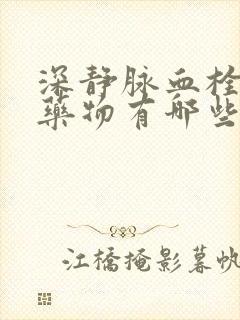 深静脉血栓
药物有哪些
江橋掩影暮帆